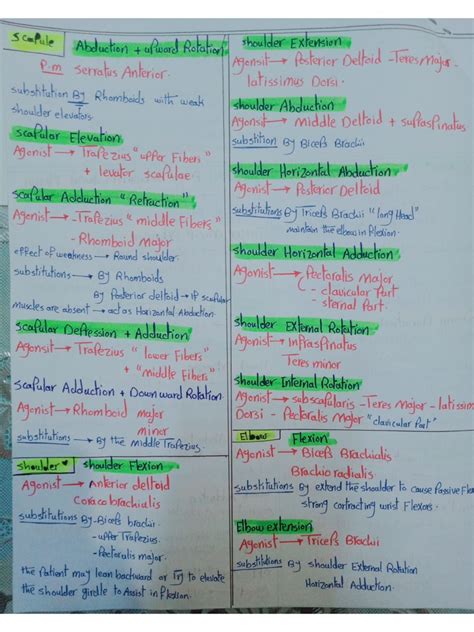 scapule
Abduction + upward Rotation
P.m serratus Anterior.
substitution By Rhomboids with weak
shoulder elevators.
scapular Elevation
Agonist → Trapezius "upper Fibers"
+ levator scapulae
scapular Adduction "Retraction"
Agonist → -Trapezius "middle Fibers"
- Rhomboid Major
effect of weakness → Round shoulder.
substitutions → By Rhomboids
By Posterior deltoid → if scapular
muscles are absent → act as Horizontal Abduction.
scapular Depression + Adduction
Agonsit → Trapezius "lower Fibers"
+ "middle Fibers"
scapular Adduction + Downward Rotation
Agonist → Rhomboid major
minor
substitutions → By the middle Trapezius.
shoulder
shoulder Flexion
Agonist → Anterior deltoid
coracobrachialis
substitutions By - Biceps brachii
- upper Trapezius.
- Pectoralis major.
the patient may lean backward or Try to elevate
the shoulder girdle to Assist in flexion.
shoulder Extension
Agonsit → Posterior Deltoid - Teres Major -
latissimus Dorsi.
shoulder Abduction
Agonsit → Middle Deltoid + supraspinatus
substition By Biceps Brachii
shoulder Horizontal Abduction
Agonist → Posterior Deltoid
substitutions By Triceps Brachii "long Head"
maintain the elbow in flexion.
shoulder Horizontal Adduction
Agonist → Pectoralis Major
- clavicular Part
- sternal Part
shoulder External Rotation
Agonist → Infraspinatus
Teres minor
shoulder Internal Rotation
Agonist → subscapularis - Teres Major - latissim
Dorsi - Pectoralis Major "clavicular Part"
Elbow
Flexion
Agonist → Biceps Brachialis
Brachioradialis
substitutions By extend the shoulder to cause Passive Flex
strong contracting wrist Flexors.
Elbow extension
Agonist → Triceps Brachii
substitutions By shoulder External Rotation
Horizontal Adduction.